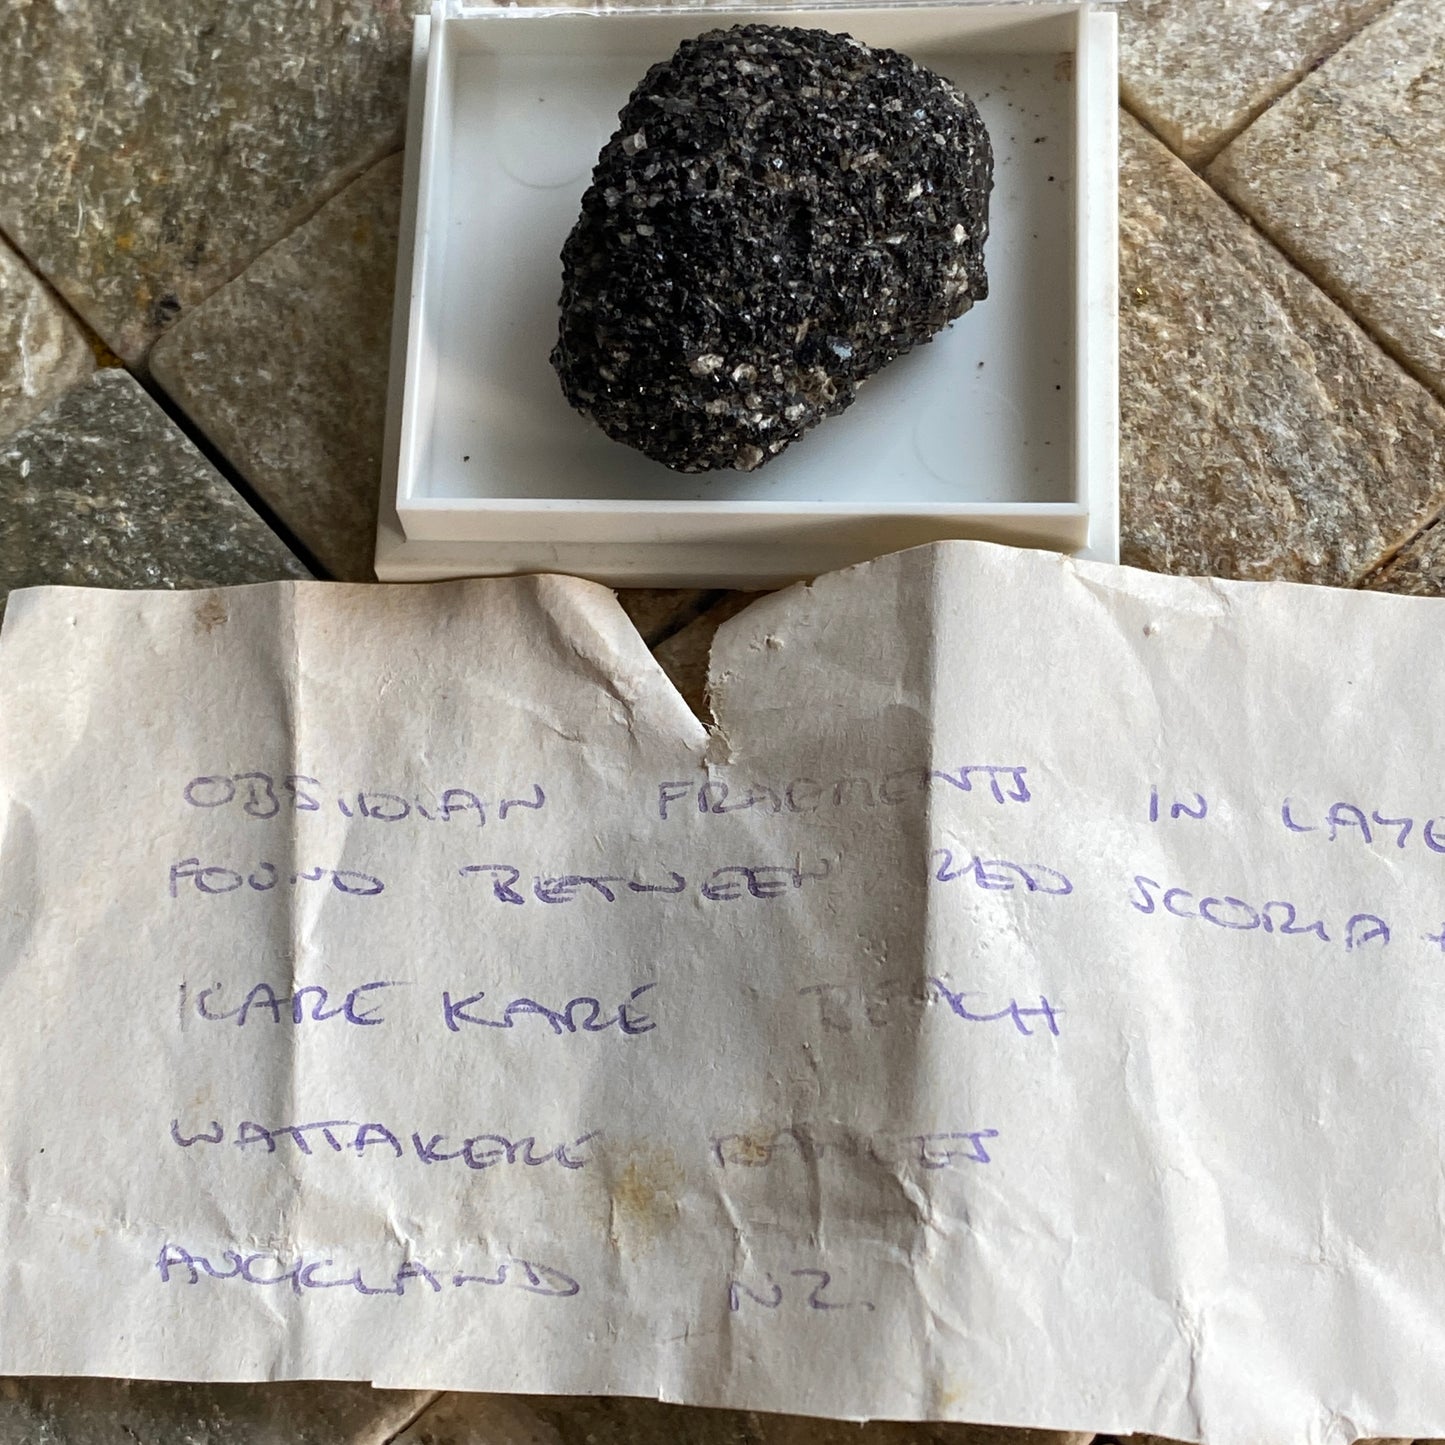 OBSIDIAN FRAGMENTS IN LAYE
FOUND BETWEEN RED SCORIA +
KARE KARE BEACH
WAITAKERE RANGES
AUCKLAND NZ.